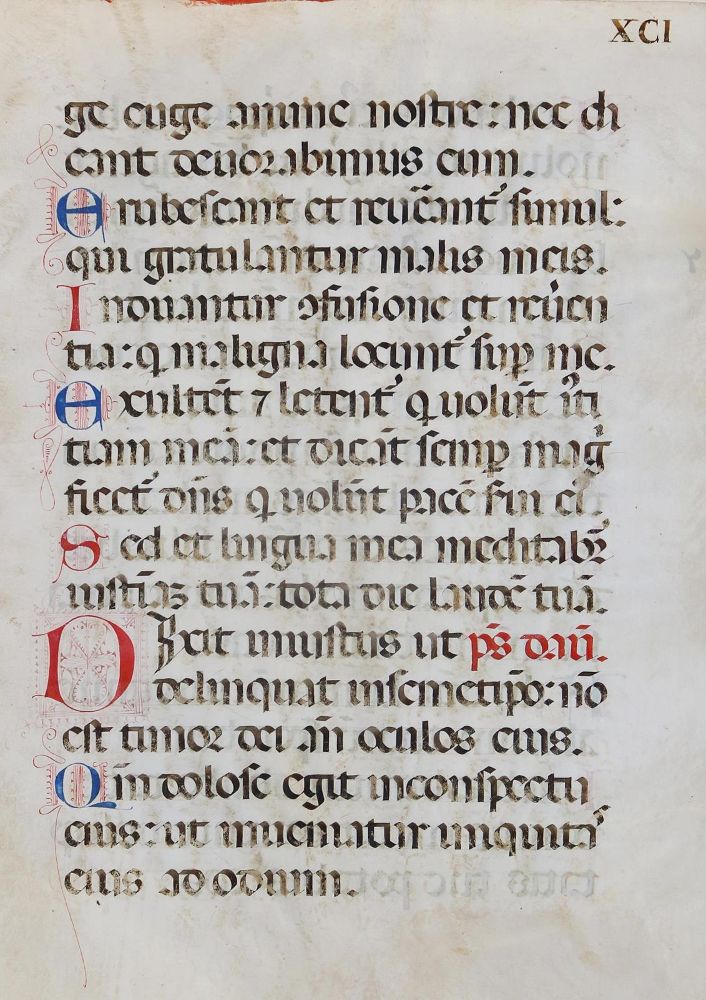 XCI
ge euge anime nostre: nec di
cant deuorabimus eum.
Erubescant et reueant͛ simul:
qui gratulantur malis meis.
Induantur ꝯfusione et reueren
tia: q̄ maligna locunt͛ suꝑ me.
Exultēt ⁊ letent͛ q̄ uolūt iusti
tiam meā: et dicāt semꝑ mag
ficet͛ dn̄s q̄ uolūt pacē serui ei͛.
Sed et lingua mea meditabit͛
iustitiā tuā: tota die laudē tuā.
Dixit iniustus ut ps̄ dauid.
delinquat in semetipo: nō
est timor dei an̄ oculos eius.
Qm̄ dolose egit in conspectu
eius: ut inueniatur iniquitas
eius ad odium.